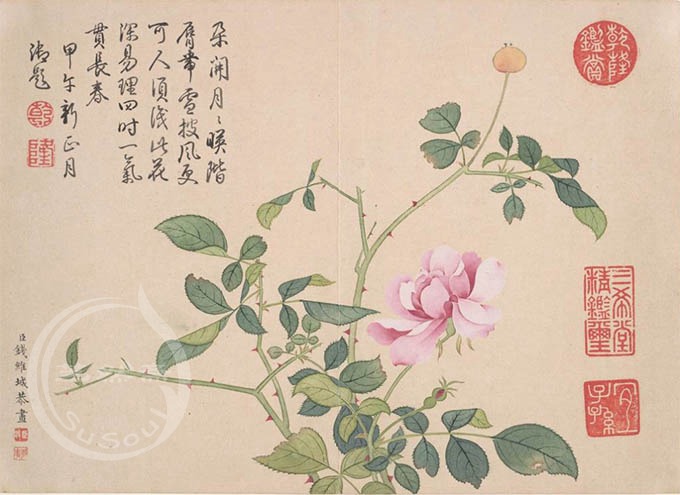 朵開月〻暎階
脣帶雪披風更
可人須識此花
深易理四时一氣
貫長春
甲午新正月
御題
乾
隆
乾隆鑑賞
三希堂精鑑璽
宜子孫
臣錢維城恭畫
SuSoul